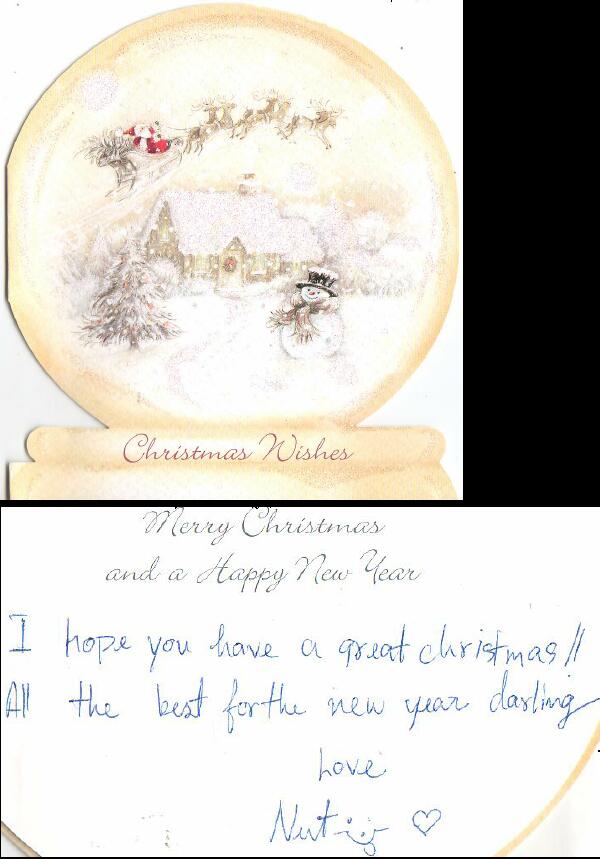 Christmas Wishes
Merry Christmas
and a Happy New Year
I hope you have a great christmas!!
All the best for the new year darling
Love
Nut ♡